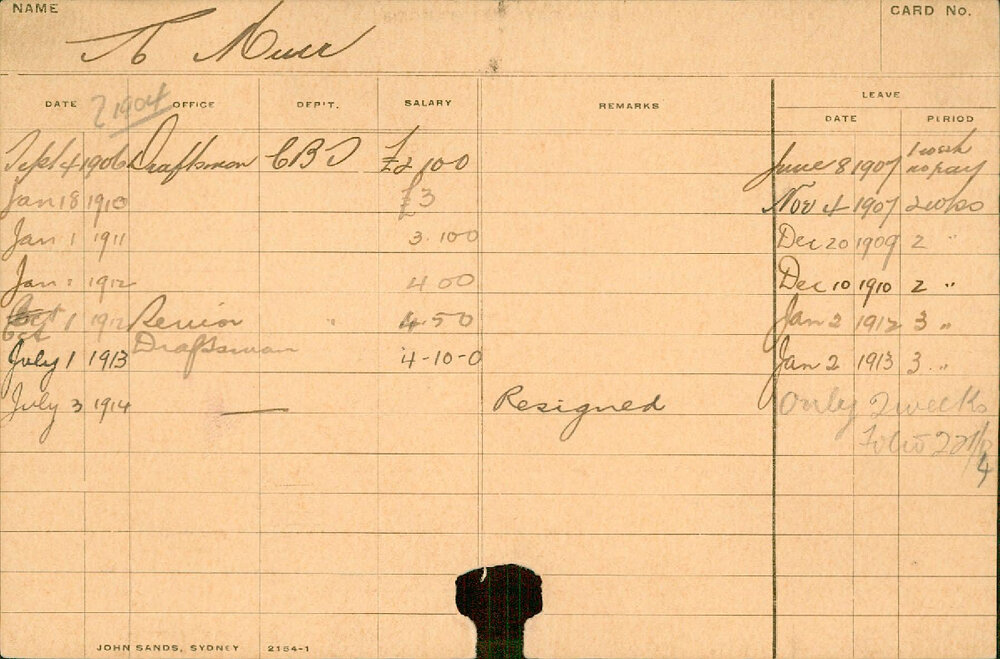 NAME
CARD No.
T Muir
DATE OFFICE DEP'T. SALARY REMARKS LEAVE
DATE PERIOD
? 1904
Sept 4 1906 Draftsman CBD £2 10 0 June 8 1907 1 week no pay
Jan 18 1910 £3 Nov 4 1907 2 wks
Jan 1 1911 3.10 0 Dec 20 1909 2 "
Jan 1 1912 4 0 0 Dec 10 1910 2 "
Oct 1 1912 Senior " 4 5 0 Jan 2 1912 3 "
Oct
Draftsman
July 1 1913 4-10-0 Jan 2 1913 3 "
July 3 1914 — Resigned Only 2 weeks
Folio
JOHN SANDS, SYDNEY 2154-1